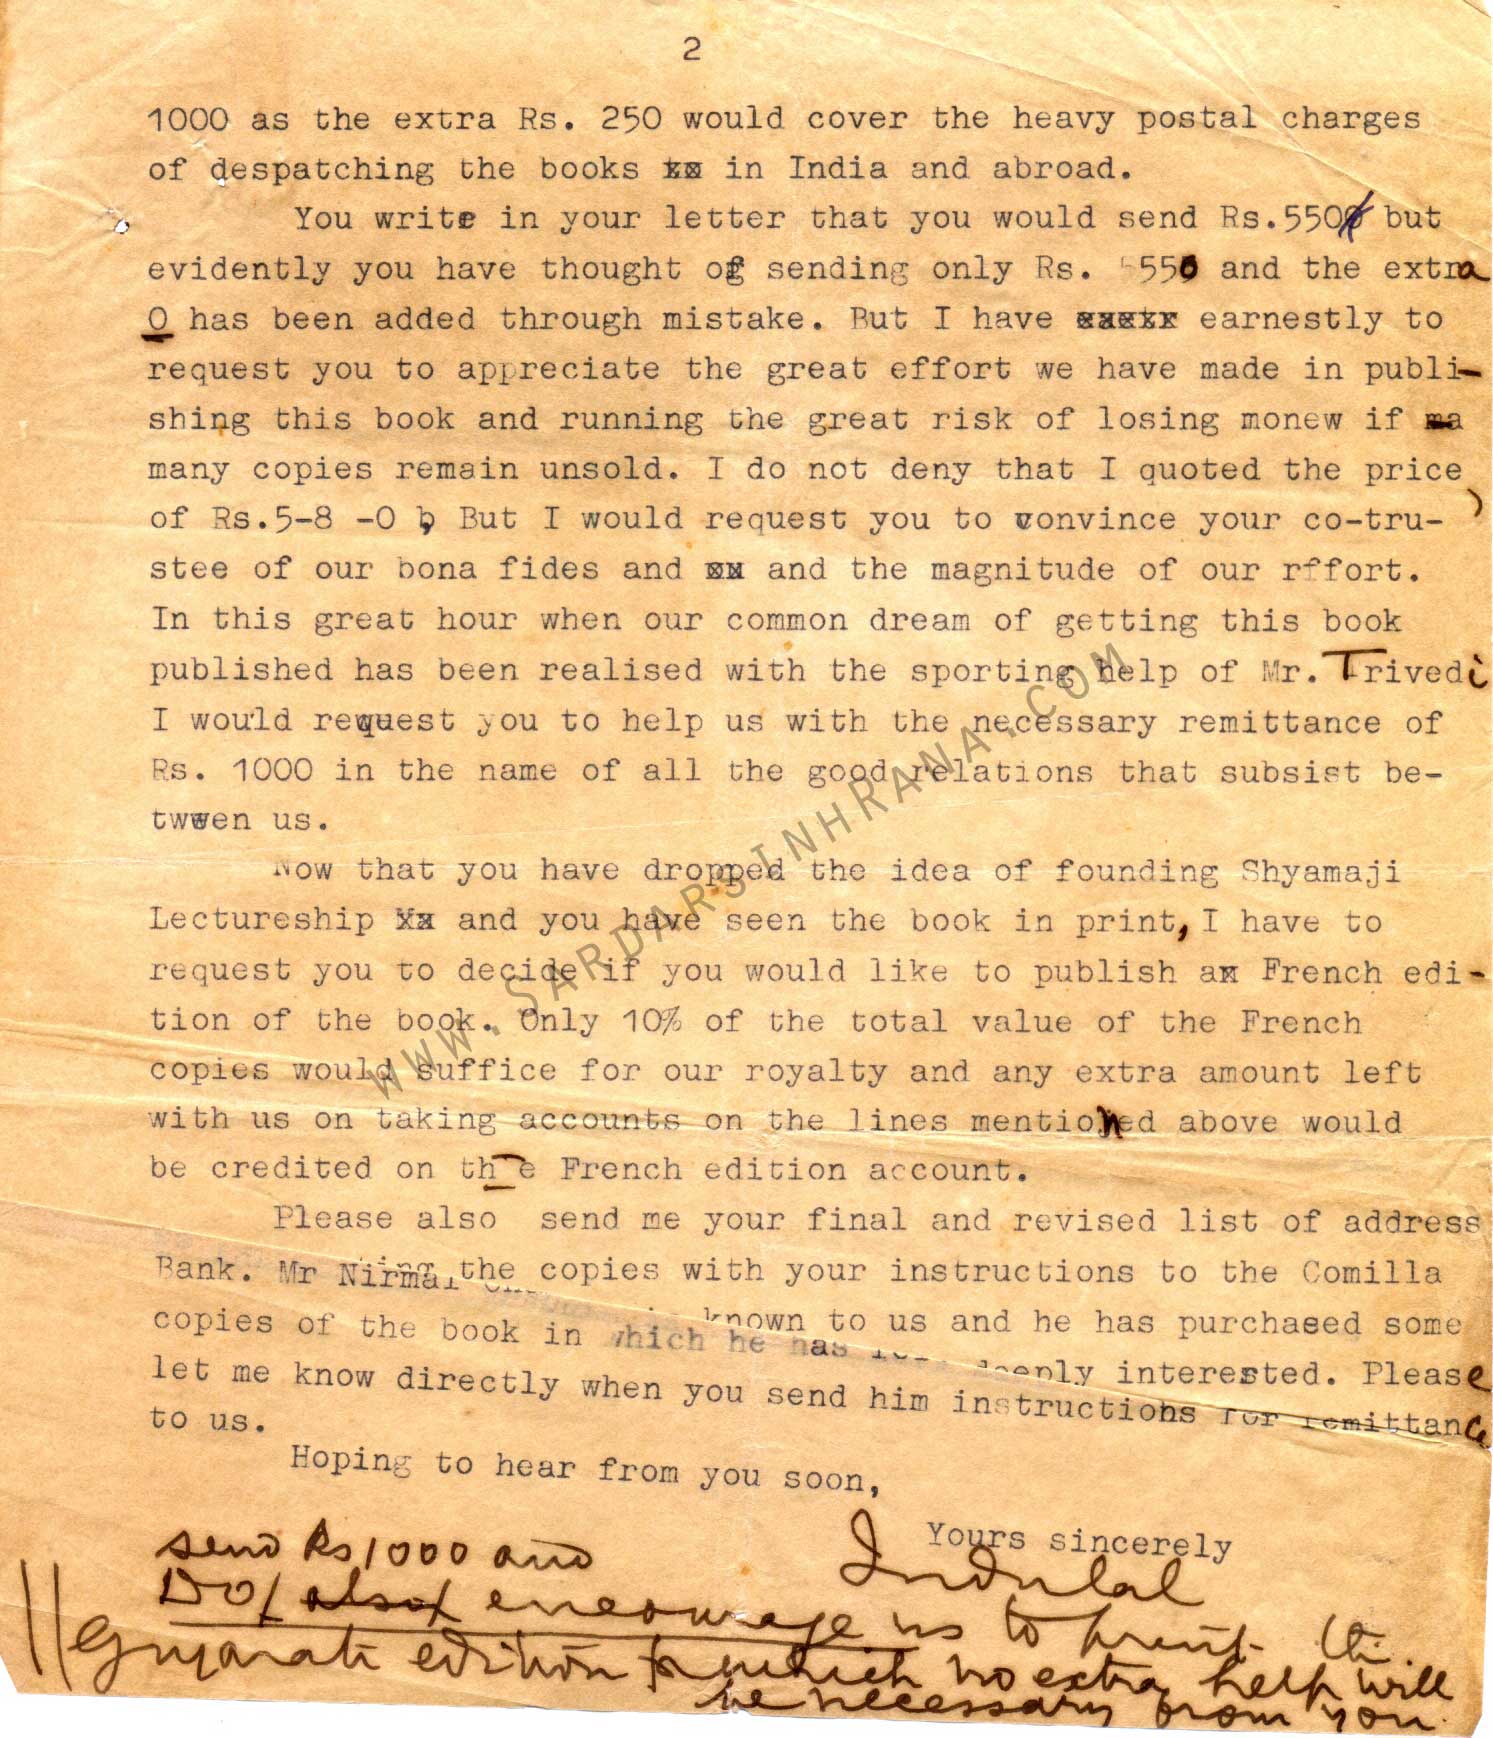 2
1000 as the extra Rs. 250 would cover the heavy postal charges
of despatching the books in India and abroad.
You write in your letter that you would send Rs.550 but
evidently you have thought of sending only Rs. 550 and the extra
0 has been added through mistake. But I have earnestly to
request you to appreciate the great effort we have made in publi-
shing this book and running the great risk of losing monew if
many copies remain unsold. I do not deny that I quoted the price
of Rs.5-8 -0 , But I would request you to convince your co-tru-
stee of our bona fides and and the magnitude of our rffort.
In this great hour when our common dream of getting this book
published has been realised with the sporting help of Mr. Trivedi
I would request you to help us with the necessary remittance of
Rs. 1000 in the name of all the good relations that subsist be-
twwen us.
Now that you have dropped the idea of founding Shyamaji
Lectureship and you have seen the book in print, I have to
request you to decide if you would like to publish a French edi-
tion of the book. Only 10% of the total value of the French
copies would suffice for our royalty and any extra amount left
with us on taking accounts on the lines mentioned above would
be credited on the French edition account.
Please also send me your final and revised list of address
Bank. Mr Nirmal the copies with your instructions to the Comilla
copies of the book in which he has known to us and he has purchased some
let me know directly when you send him instructions for remittance
deeply interested. Please
to us.
Hoping to hear from you soon,
Yours sincerely
Indulal
send Rs 1000 and
Do also encourage us to print the
Gujarati edition for which no extra help will
be necessary from you.
WWW.SARDARSINHRANA.COM